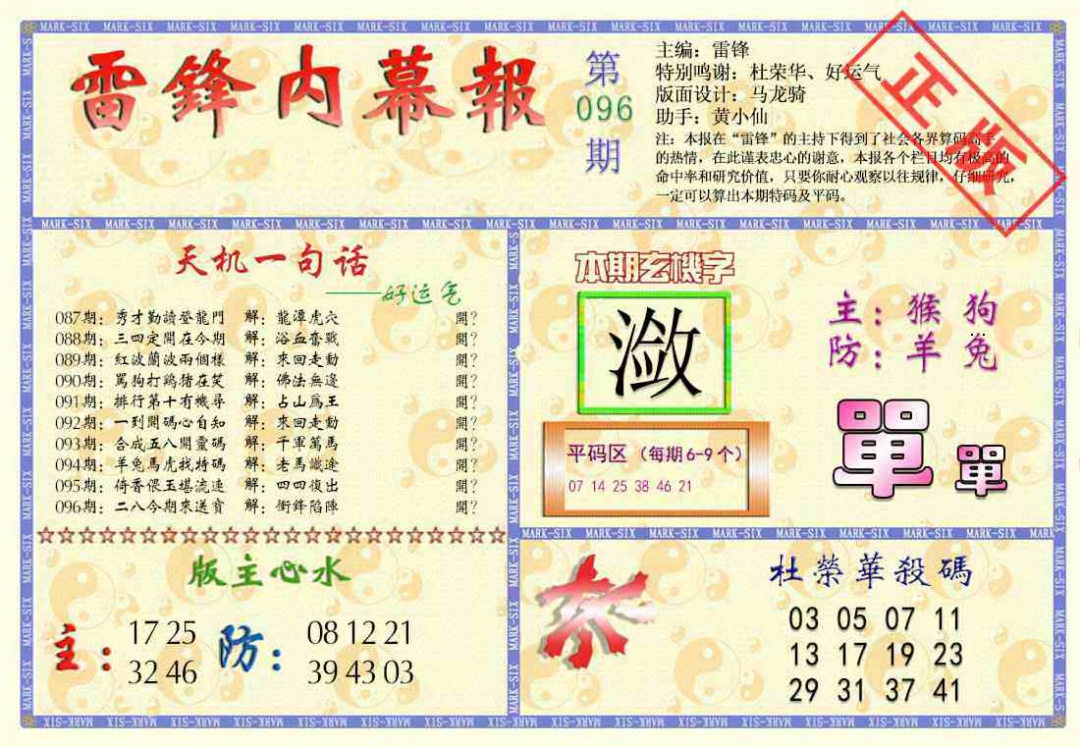 雷鋒内幕報
第
096
期
主编：雷锋
特别鸣谢：杜荣华、好运气
版面设计：马龙骑
助手：黄小仙
注：本报在“雷锋”的主持下得到了社会各界算码高手
的热情，在此谨表忠心的谢意，本报各个栏目均有极高的
命中率和研究价值，只要你耐心观察以往规律，仔细研究，
一定可以算出本期特码及平码。
正版
天机一句话
——好运气
087期：秀才勤讀登龍門 解：龍潭虎穴 開？
088期：三四定開在今期 解：浴血奮戰 開？
089期：紅波蘭波兩個樣 解：來回走動 開？
090期：罵狗打鸡猪在笑 解：佛法無邊 開？
091期：排行第十有機尋 解：占山爲王 開？
092期：一到開碼心自知 解：來回走動 開？
093期：合成五八開靈碼 解：千軍萬馬 開？
094期：羊兔馬虎找特碼 解：老馬識途 開？
095期：倚香偎玉堪流連 解：四四復出 開？
096期：二八今期來送寳 解：衝鋒陷陣 開？
☆☆☆☆☆☆☆☆☆☆☆☆☆☆☆☆☆☆☆☆☆☆☆
版主心水
主：
17 25
32 46
防：
08 12 21
39 43 03
本期玄機字
瀲
主：猴 狗
防：羊 兔
平码区（每期6-9个）
07 14 25 38 46 21
單 單
杜榮華殺碼
03 05 07 11
13 17 19 23
29 31 37 41
MARK-SIX